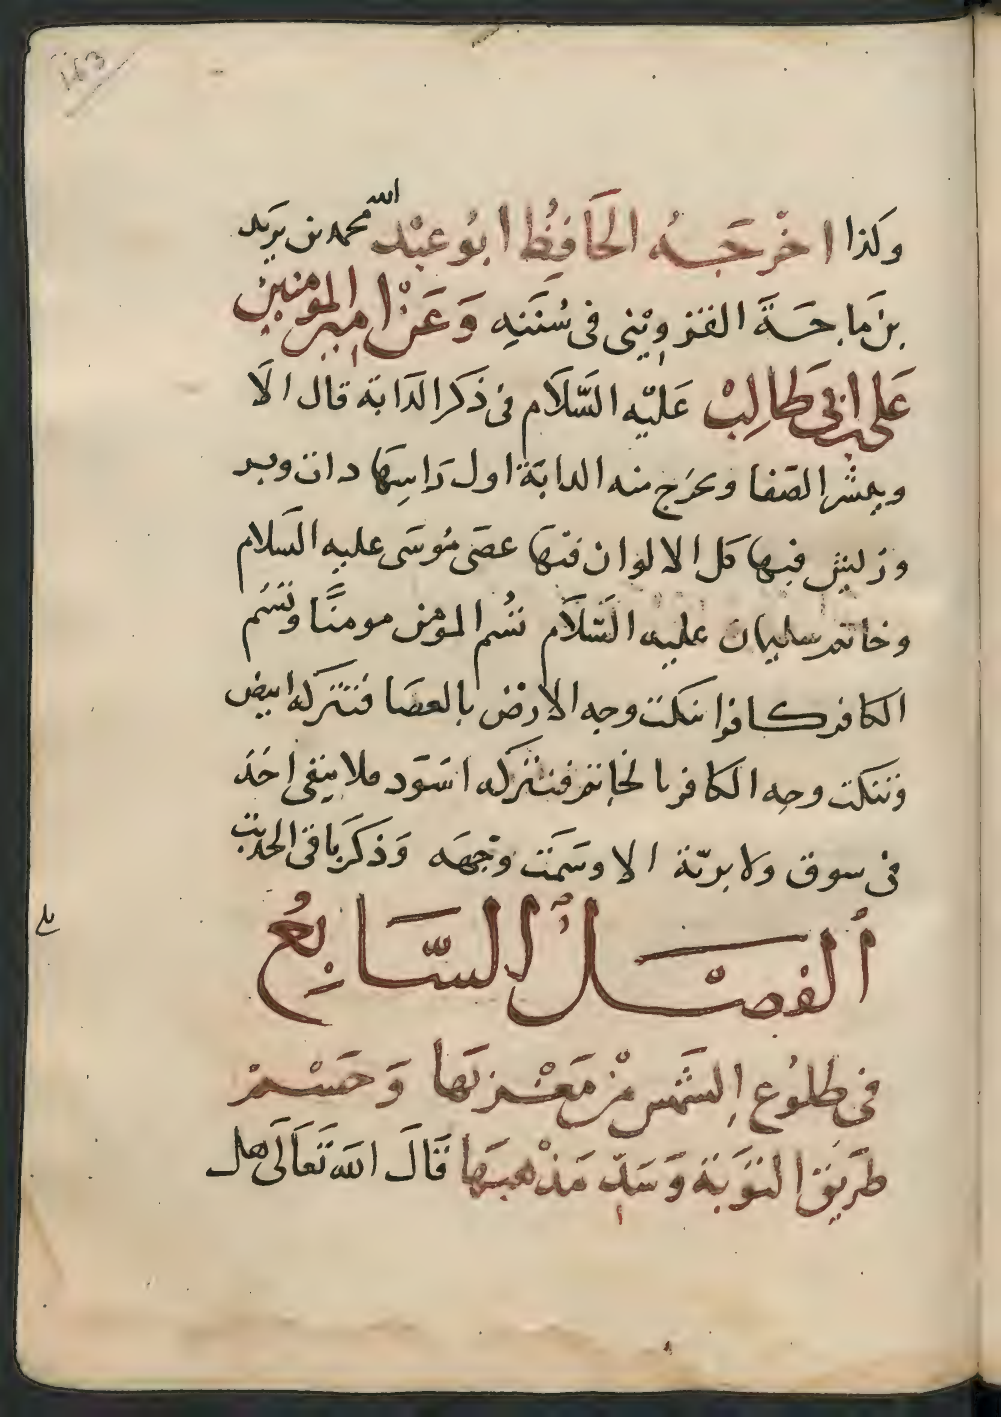 163
وكذا اخرجه الحافظ ابو عبد الله محمد بن يزيد
بن ماجة القزويني في سننه وعن امير المومنين
علي ابن ابي طالب عليه السلام في ذكر الدابة قال الا
الصفا وتخرج منه الدابة اول راسها ذات وبر
وريش فيها كل الالوان فيها عصى موسى عليه السلام
وخاتم سليمان عليه السلام تسم المومن مومنا وتسم
الكافر كافرا تنكت وجه الارض بالعصا فتتركه ابيض
وتنكت وجه الكافر بالخاتم فتتركه اسود فلا يبقى احد
في سوق ولا برية الا وسمت وجهه وذكر باقي الحديث
الفصل السابع
في طلوع الشمس من مغربها وحسم
طريق التوبة وسد مذهبها قال الله تعالى هل